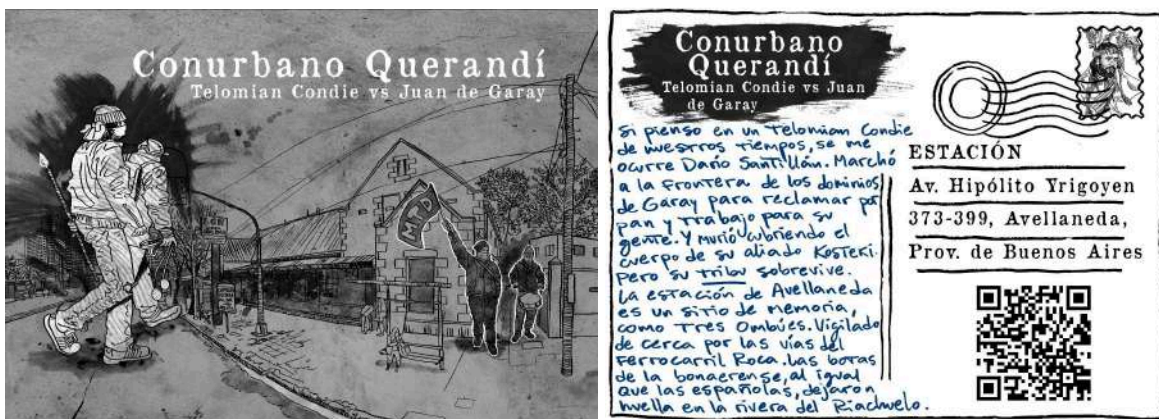 Conurbano Querandí
Telomian Condie vs Juan de Garay
MTD
Conurbano
Querandí
Telomian Condie vs Juan
de Garay
Si pienso en un Telomian Condie
de nuestros tiempos, se me
ocurre Darío Santillán. Marchó
a la frontera de los dominios
de Garay para reclamar por
pan y trabajo para su
gente. Y murió cubriendo el
cuerpo de su aliado Kosteki.
Pero su tribu sobrevive.
La estación de Avellaneda
es un sitio de memoria,
como Tres Ombúes. Vigilado
de cerca por las vías del
Ferrocarril Roca. Las botas
de la bonaerense, al igual
que las españolas, dejaron
huella en la rivera del Riachuelo.
ESTACIÓN
Av. Hipólito Yrigoyen
373-399, Avellaneda,
Prov. de Buenos Aires